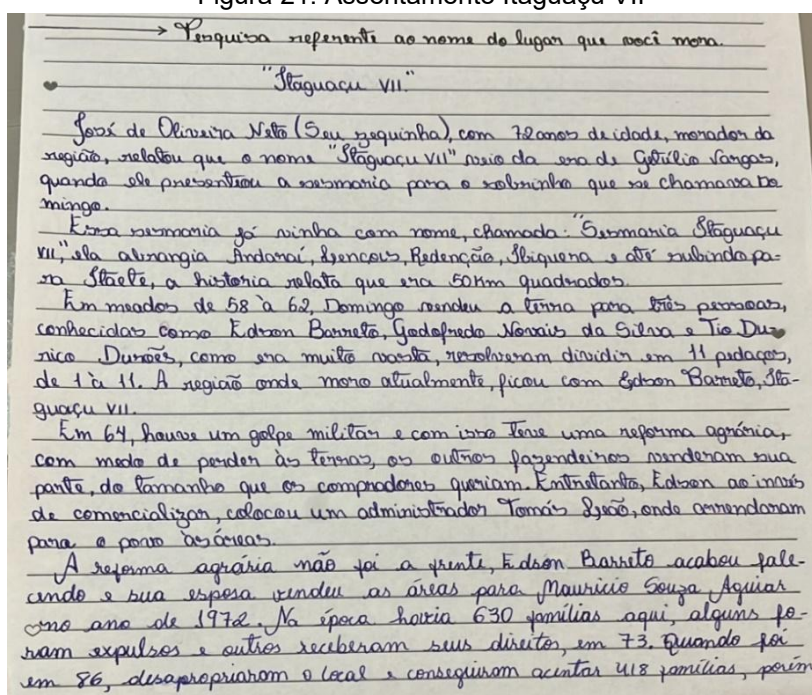 Figura 21: Assentamento Itaguaçu VII
→ Pesquisa referente ao nome do lugar que você mora.
"Itaguaçu VII."
José de Oliveira Neto (Seu zequinha), com 72 anos de idade, morador da
região, relatou que o nome "Itaguaçu VII" veio da era de Getúlio Vargas,
quando ele presentiou a sesmaria para o sobrinho que se chamava Do
mingo.
Essa sesmaria já vinha com nome, chamada: "Sesmaria Itaguaçu
VII," ela abrangia Andaraí, Lençois, Redenção, Ibiquera e até subindo pa-
ra Itaete, a historia relata que era 50Km quadrados.
Em meados de 58 à 62, Domingo vendeu a terra para três pessoas,
conhecidas como Edson Barreto, Godofredo Novais da Silva e Tio Du
nico Durões, como era muito vasta, resolveram dividir em 11 pedaços,
de 1 à 11. A região onde moro atualmente, ficou com Edson Barreto, Ita-
guaçu VII.
Em 64, houve um golpe militar e com isso teve uma reforma agrária,
com medo de perder às terras, os outros fazendeiros venderam sua
parte, do tamanho que os compradores queriam. Entretanto, Edson ao invés
de comercializar, colocou um administrador Tomás Leão, onde arrendaram
para o povo as áreas.
A reforma agrária não foi a frente, Edson Barreto acabou fale-
cendo e sua esposa vendeu as áreas para Mauricio Souza Aguiar
no ano de 1972. Na época havia 630 famílias aqui, alguns fo-
ram expulsos e outros receberam seus direitos, em 73. Quando foi
em 86, desapropriaram o local e conseguiram acentar 418 famílias, porém